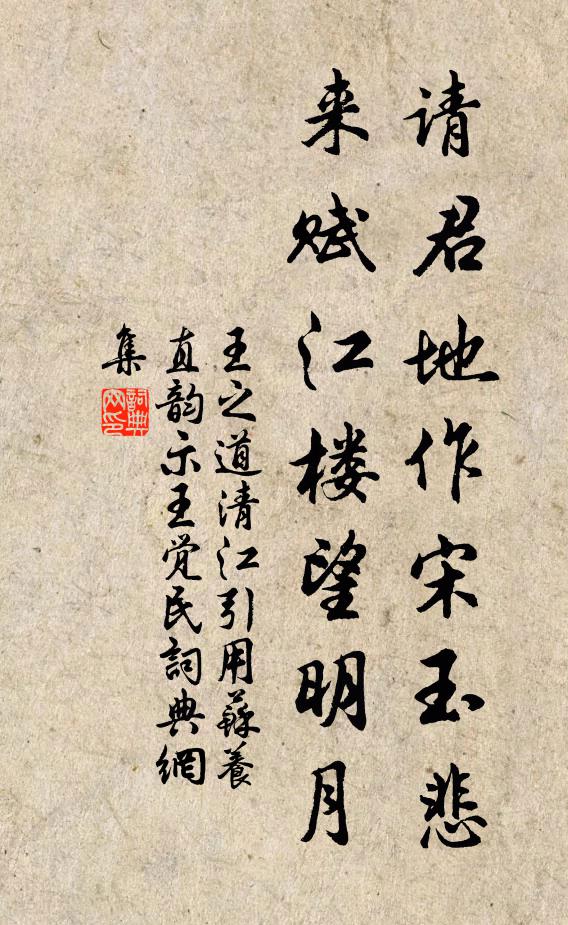 请君地作宋玉悲
来赋江楼望明月
王之道清江引用蘇養
直韵示王觉民詞典網
集
詞典
网印